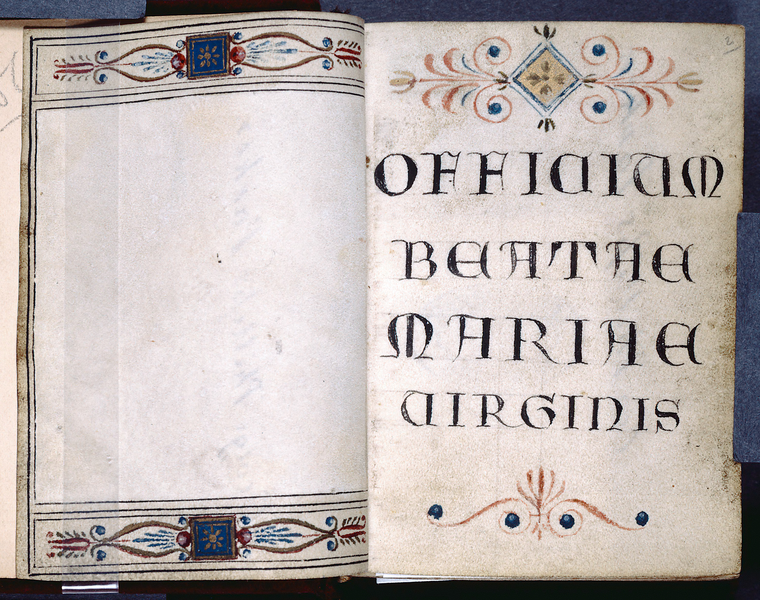 OFFICIUM
BEATAE
MARIAE
VIRGINIS